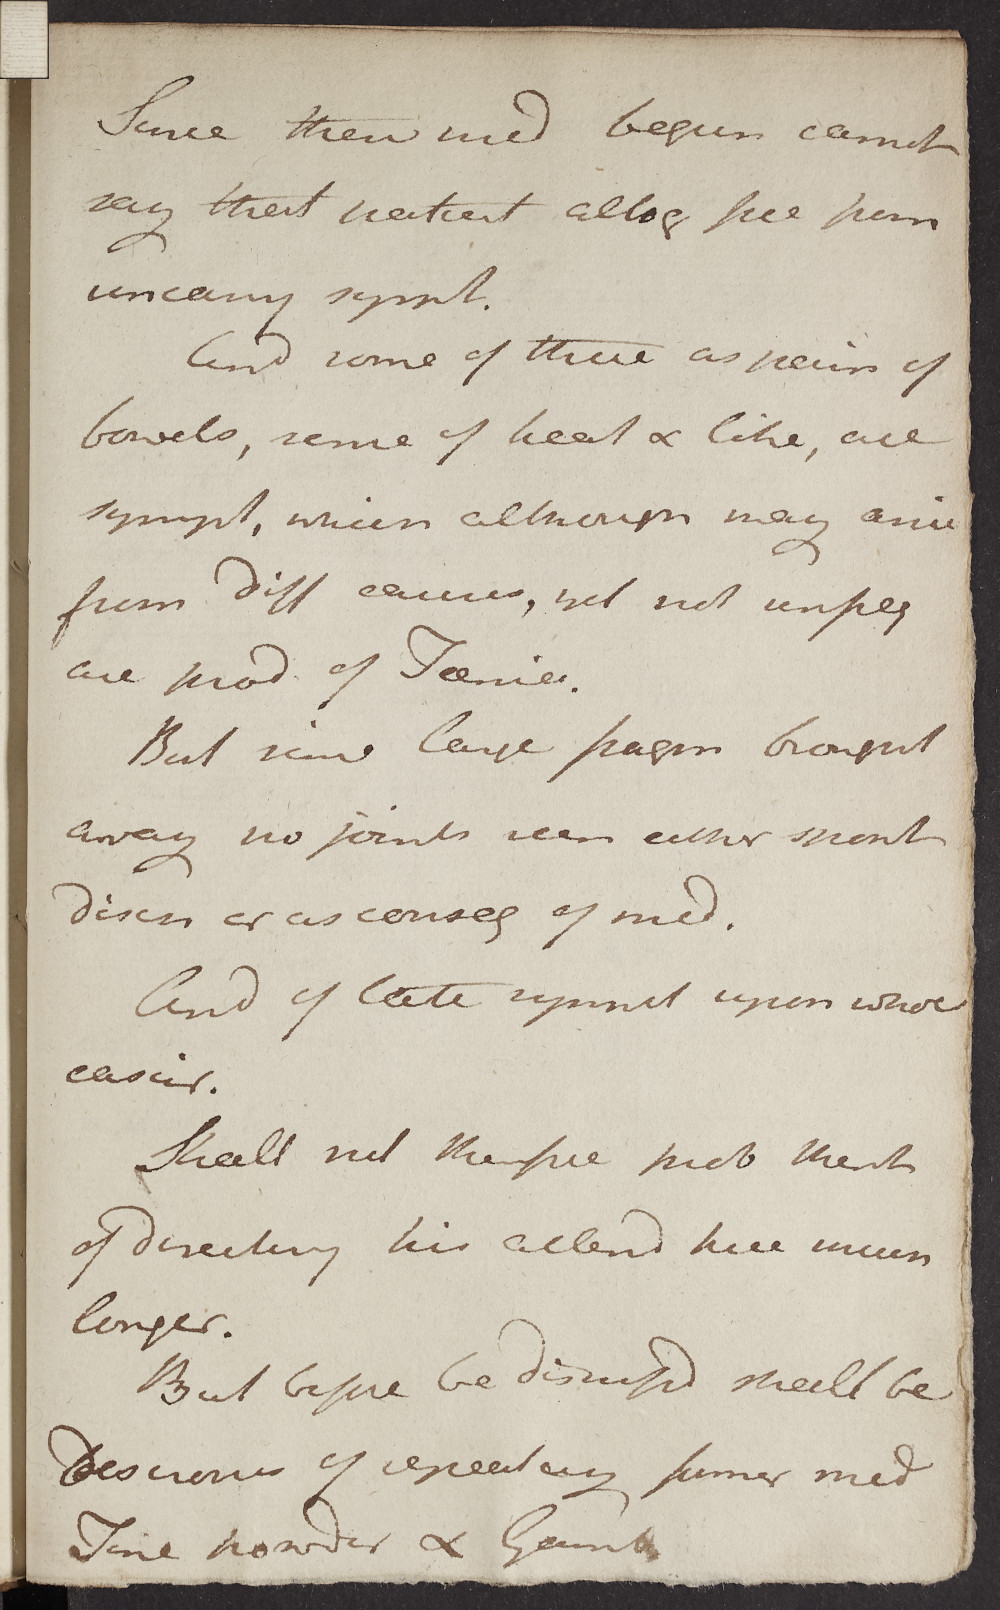 Since then med begun cannot
say that patient altog free from
uneasy sympt.
And some of these as pain of
bowels, sense of heat & like, are
sympt, which although may arise
from diff causes, yet not unfreq
are prod of Tænia.
But since large fragm brought
away no joints seen either spont
disch or as conseq of med.
And of late sympt upon whole
easier.
Shall not therefore prob think
of directing his attend here much
longer.
But before be dismissd shall be
Desirous of repeating former med
Tine powder & Gamb